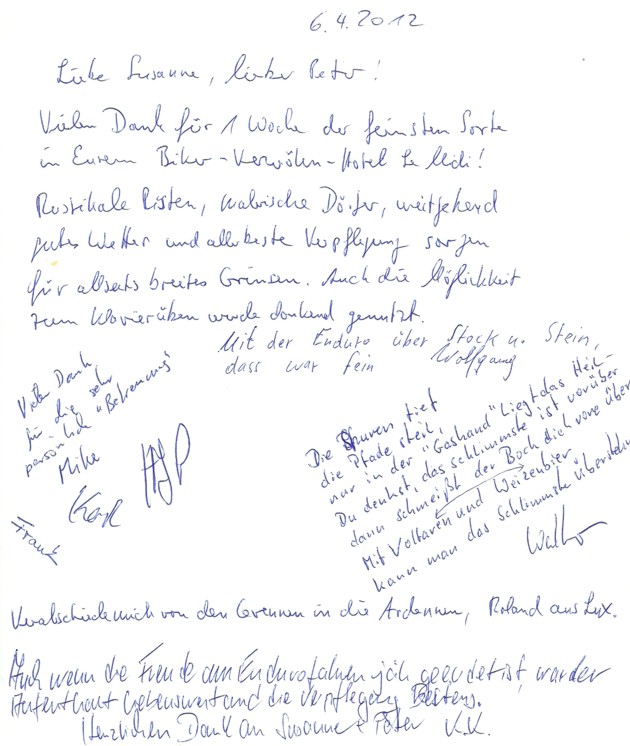 6.4.2012
Liebe Susanne, lieber Peter!
Vielen Dank für 1 Woche der feinsten Sorte
in Eurem Biker-Verwöhn-Hotel Le Midi!
Rustikale Pisten, malerische Dörfer, weitgehend
gutes Wetter und allerbeste Verpflegung sorgen
für allseits breites Grinsen. Auch die Möglichkeit
zum Klavierüben wurde dankend genutzt.
Mit der Enduro über Stock u. Stein,
dass war fein Wolfgang
Vielen Dank
für die sehr
persönliche "Betreuung"
Mike
Karl
Frank
Die Spuren tief
die Pfade steil,
nur in der "Gashand" liegt das Heil-
Du denkst, das schlimmste ist vorüber
dann schmeißt der Bock dich vorne über
Mit Voltaren und Weizenbier
kann man das Schlimmste überstehn
Walter
Verabschiede mich von den Cevennen in die Ardennen, Roland aus Lux.
Auch wenn die Freude am Endurofahren jäh geendet ist, war der
Aufenthalt lebenswert und die Verpflegung Bestens.
Herzlichen Dank an Susanne + Peter K.K.